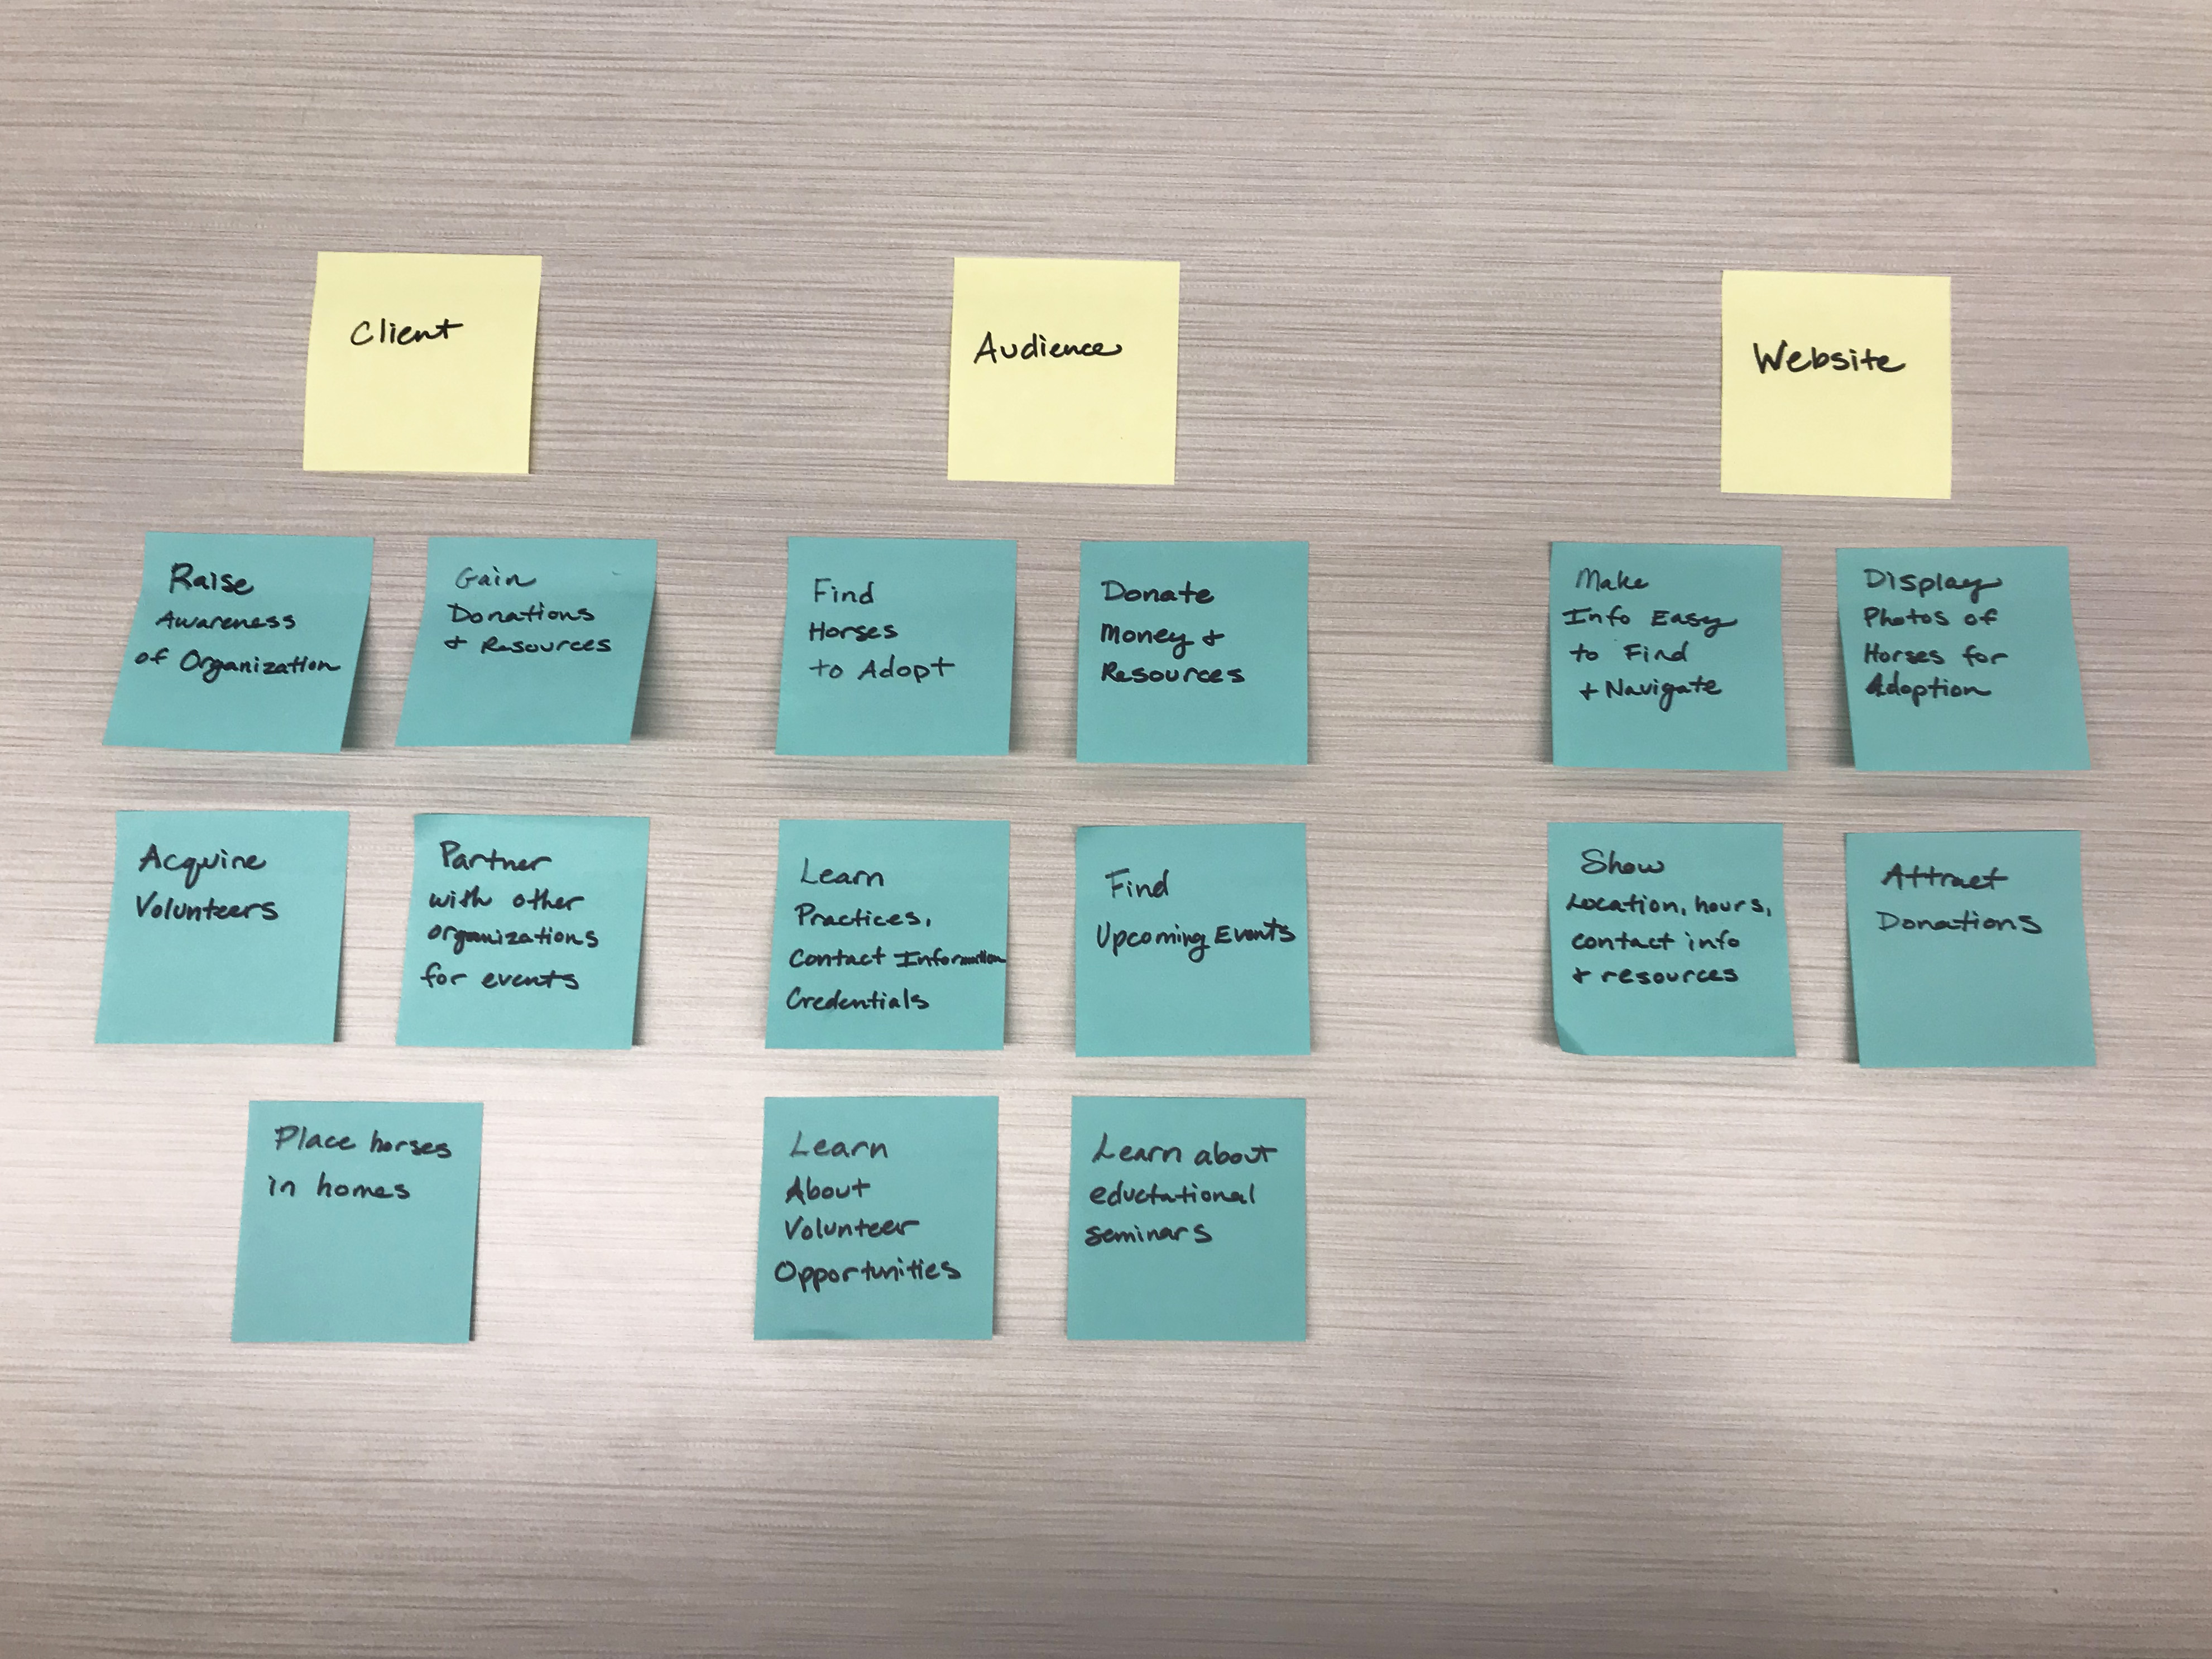 Client
Raise
Awareness
of Organization
Gain
Donations
+ Resources
Acquire
Volunteers
Partner
with other
organizations
for events
Place horses
in homes
Audience
Find
Horses
to Adopt
Donate
Money +
Resources
Learn
Practices,
Contact Information
Credentials
Find
Upcoming Events
Learn
About
Volunteer
Opportunities
Learn about
eductational
seminars
Website
Make
Info Easy
to Find
+ Navigate
Display
Photos of
Horses for
Adoption
Show
Location, hours,
contact info
+ resources
Attract
Donations